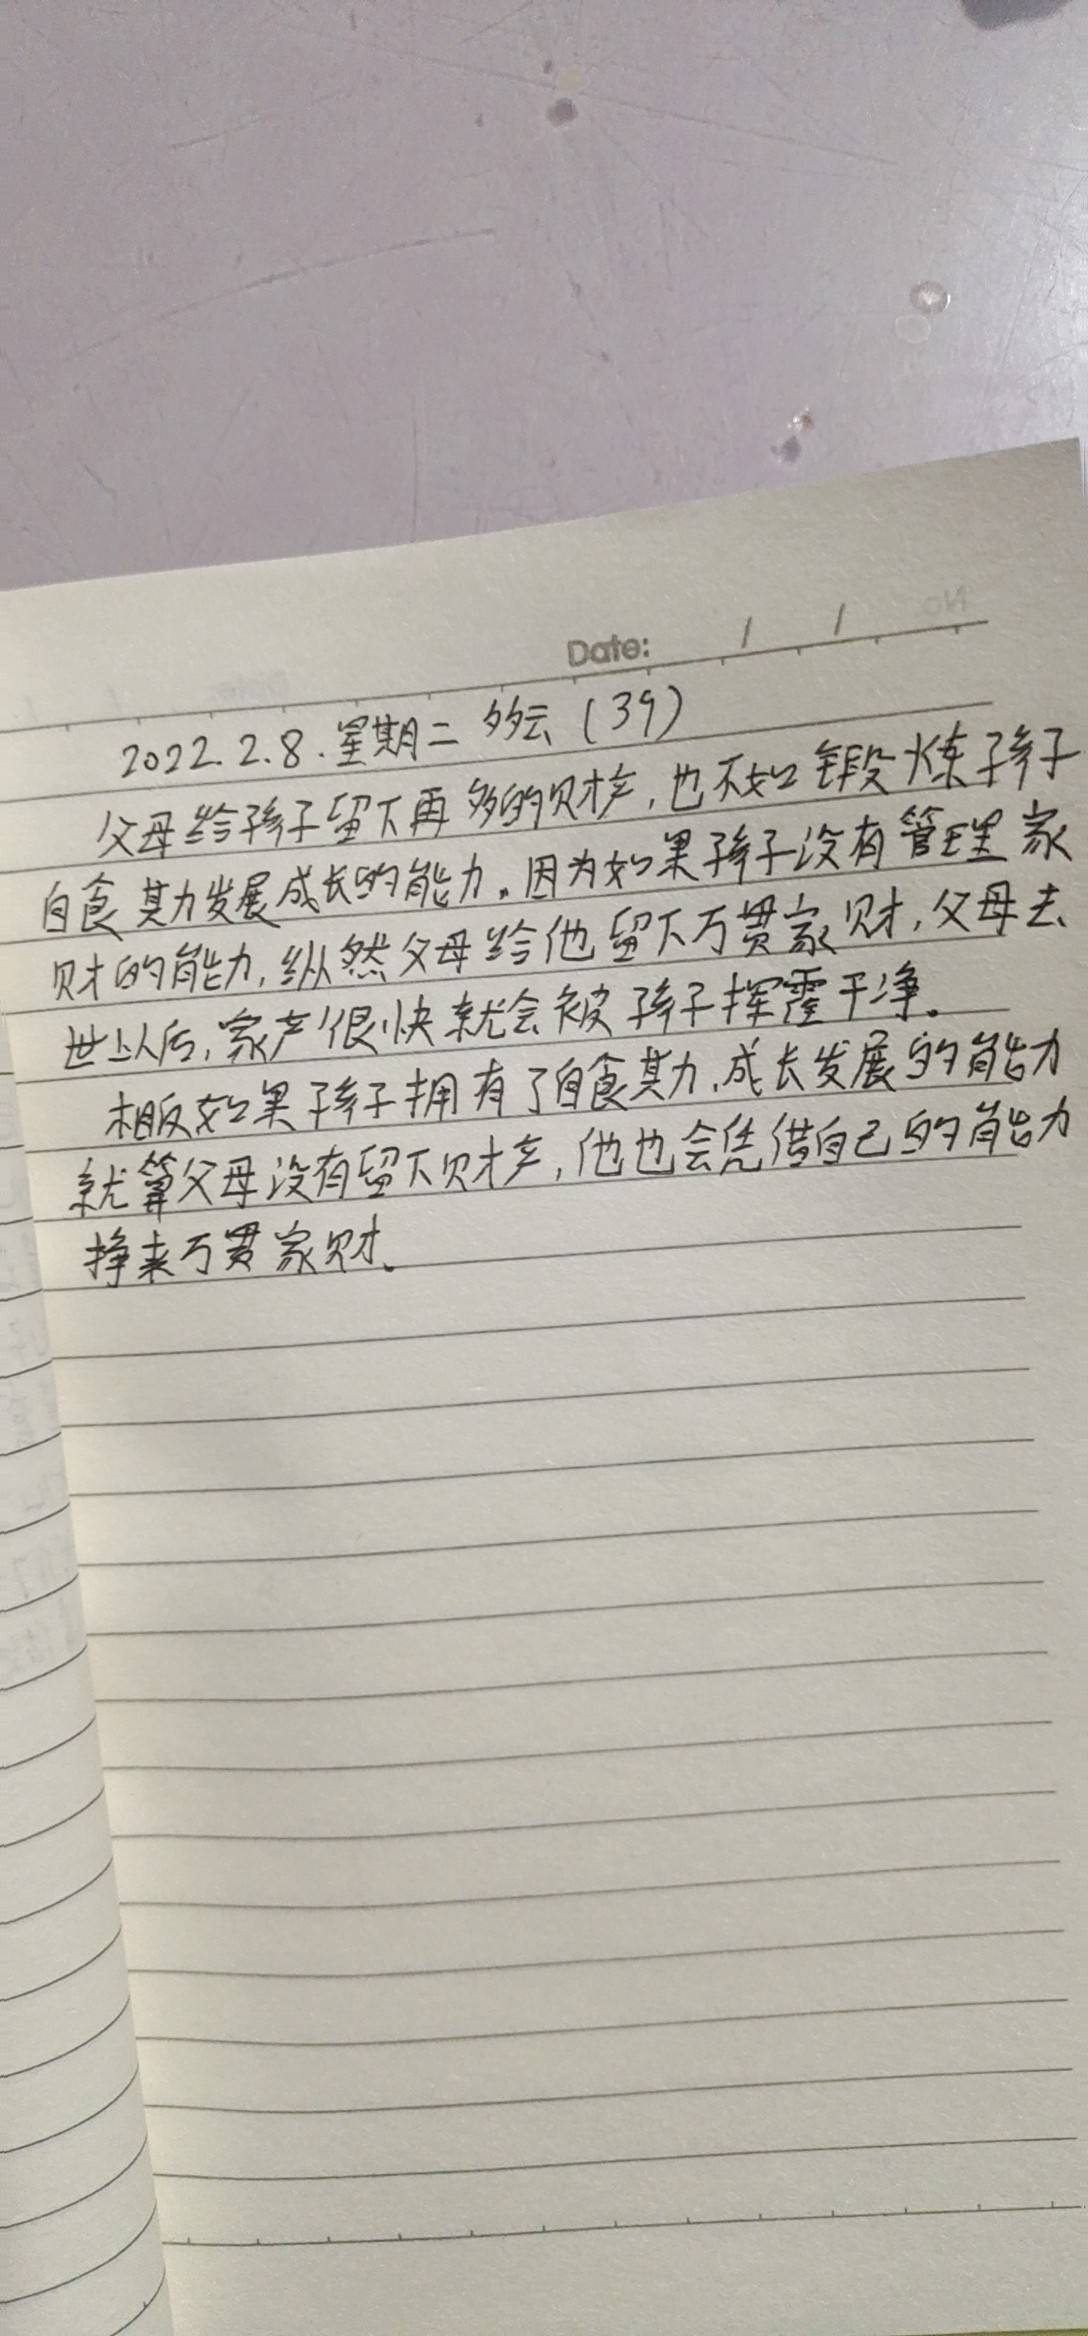 Date: / /
2022.2.8.星期二 多云 (39)
父母给孩子留下再多的财产,也不如锻炼孩子
自食其力发展成长的能力。因为如果孩子没有管理家
财的能力,纵然父母给他留下万贯家财,父母去
世以后,家产很快就会被孩子挥霍干净。
相反如果孩子拥有了自食其力,成长发展的能力
就算父母没有留下财产,他也会凭借自己的能力
挣来万贯家财。